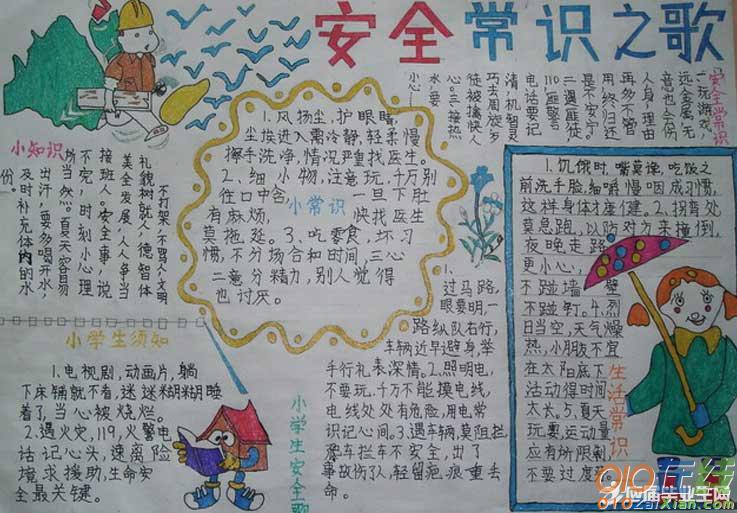 安全常识之歌
安全常识
一、玩游戏,
远金属,无
意也会伤
人身,理由
再多不管
用,终归还
是不安宁。
二、遇匪徒,
110匪警
电话要记
清,机智灵
巧去周旋,歹
徒被擒快人
心。三、接热
水,要
小心
小知识
不打架,不骂人,文明
礼貌树新人,德智体
美全发展,人人争当
接班人。安全事,说
不完,时刻小心理
所当然。夏天容易
出汗,要多喝开水,
及时补充体内的水
份。
1.风扬尘,护眼睛,
尘埃进入需冷静,轻柔慢
擦手洗净,情况严重找医生。
2、细小物,注意玩,千万别
往口中含,一旦下肚
有麻烦,快找医生
莫拖延。3、吃零食,坏习
惯,不分场合和时间,三心
二意分精力,别人觉得
也讨厌。
小常识
小学生须知
1.电视剧,动画片,躺
下床铺就不看,迷迷糊糊睡
着了,当心被烧烂。
2.遇火灾,119,火警电
话记心头,速离险
境求援助,生命安
全最关键。
小学生安全歌
1.
过马路,
眼要明,一
路纵队右行,
车辆近早避身,举
手行礼表深情。2.照明电,
不要玩,千万不能摸电线,
电线处处有危险,用电常
识记心间。3.遇车辆,莫阻拦,
爬车拦车不安全,出了
事故伤了人,轻留疤痕重丢
命。
1.饥饿时,嘴莫馋,吃饭之
前洗手脸,细嚼慢咽成习惯,
这样身体才康健。2、拐弯处
莫急跑,以防对方来撞倒,
夜晚走路
更小心,
不碰墙壁
不碰钉。4.烈
日当空,天气燥
热,小朋友不宜
在太阳底下
活动得时间
太长。5.夏天
玩耍,运动量
应有所限制
不要过度
生活常识
010在线
应届毕业生网
010zaixian.com